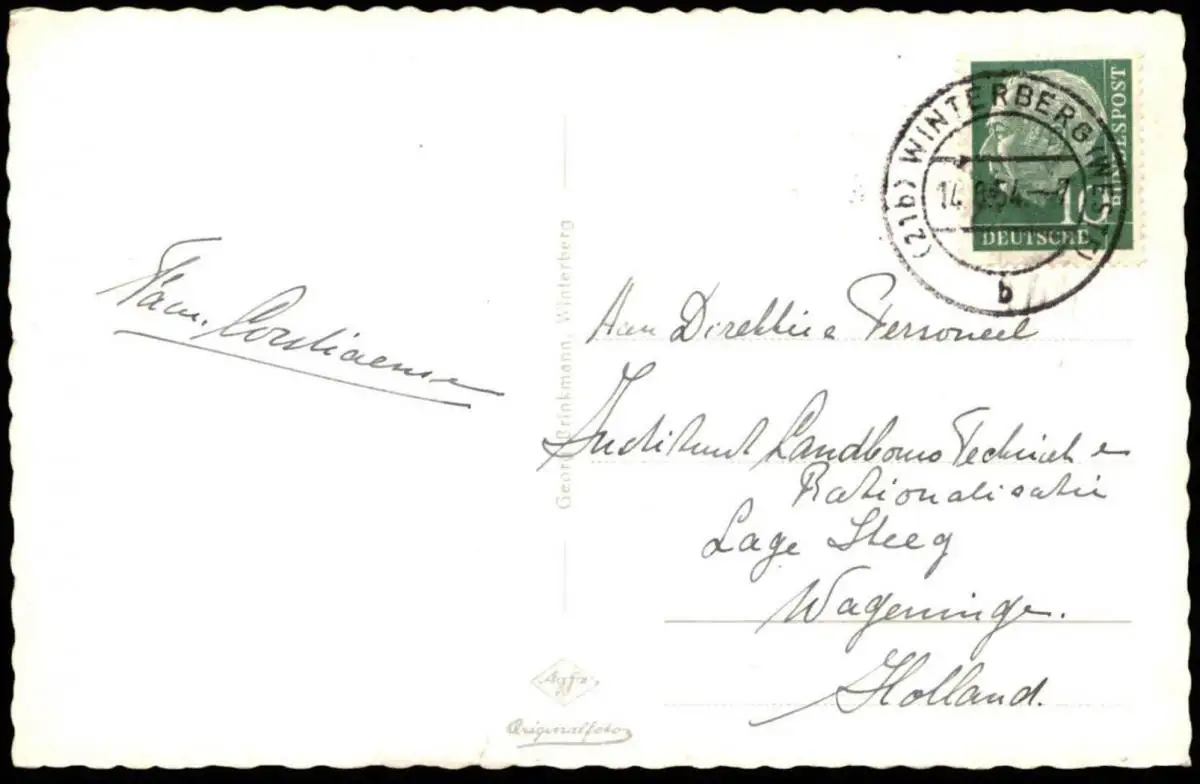 Fam. Corstiaensen
Aan Direktie e Personeel
Instituut Landbouw Techniek e
Rationalisatie
Lage Steeg
Wageninge.
Holland.
BUNDESPOST
10
DEUTSCHE
(21b) WINTERBERG (WESTF)
14. .54.-7
b
Georg Brinkmann, Winterberg
Agfa
Originalfoto